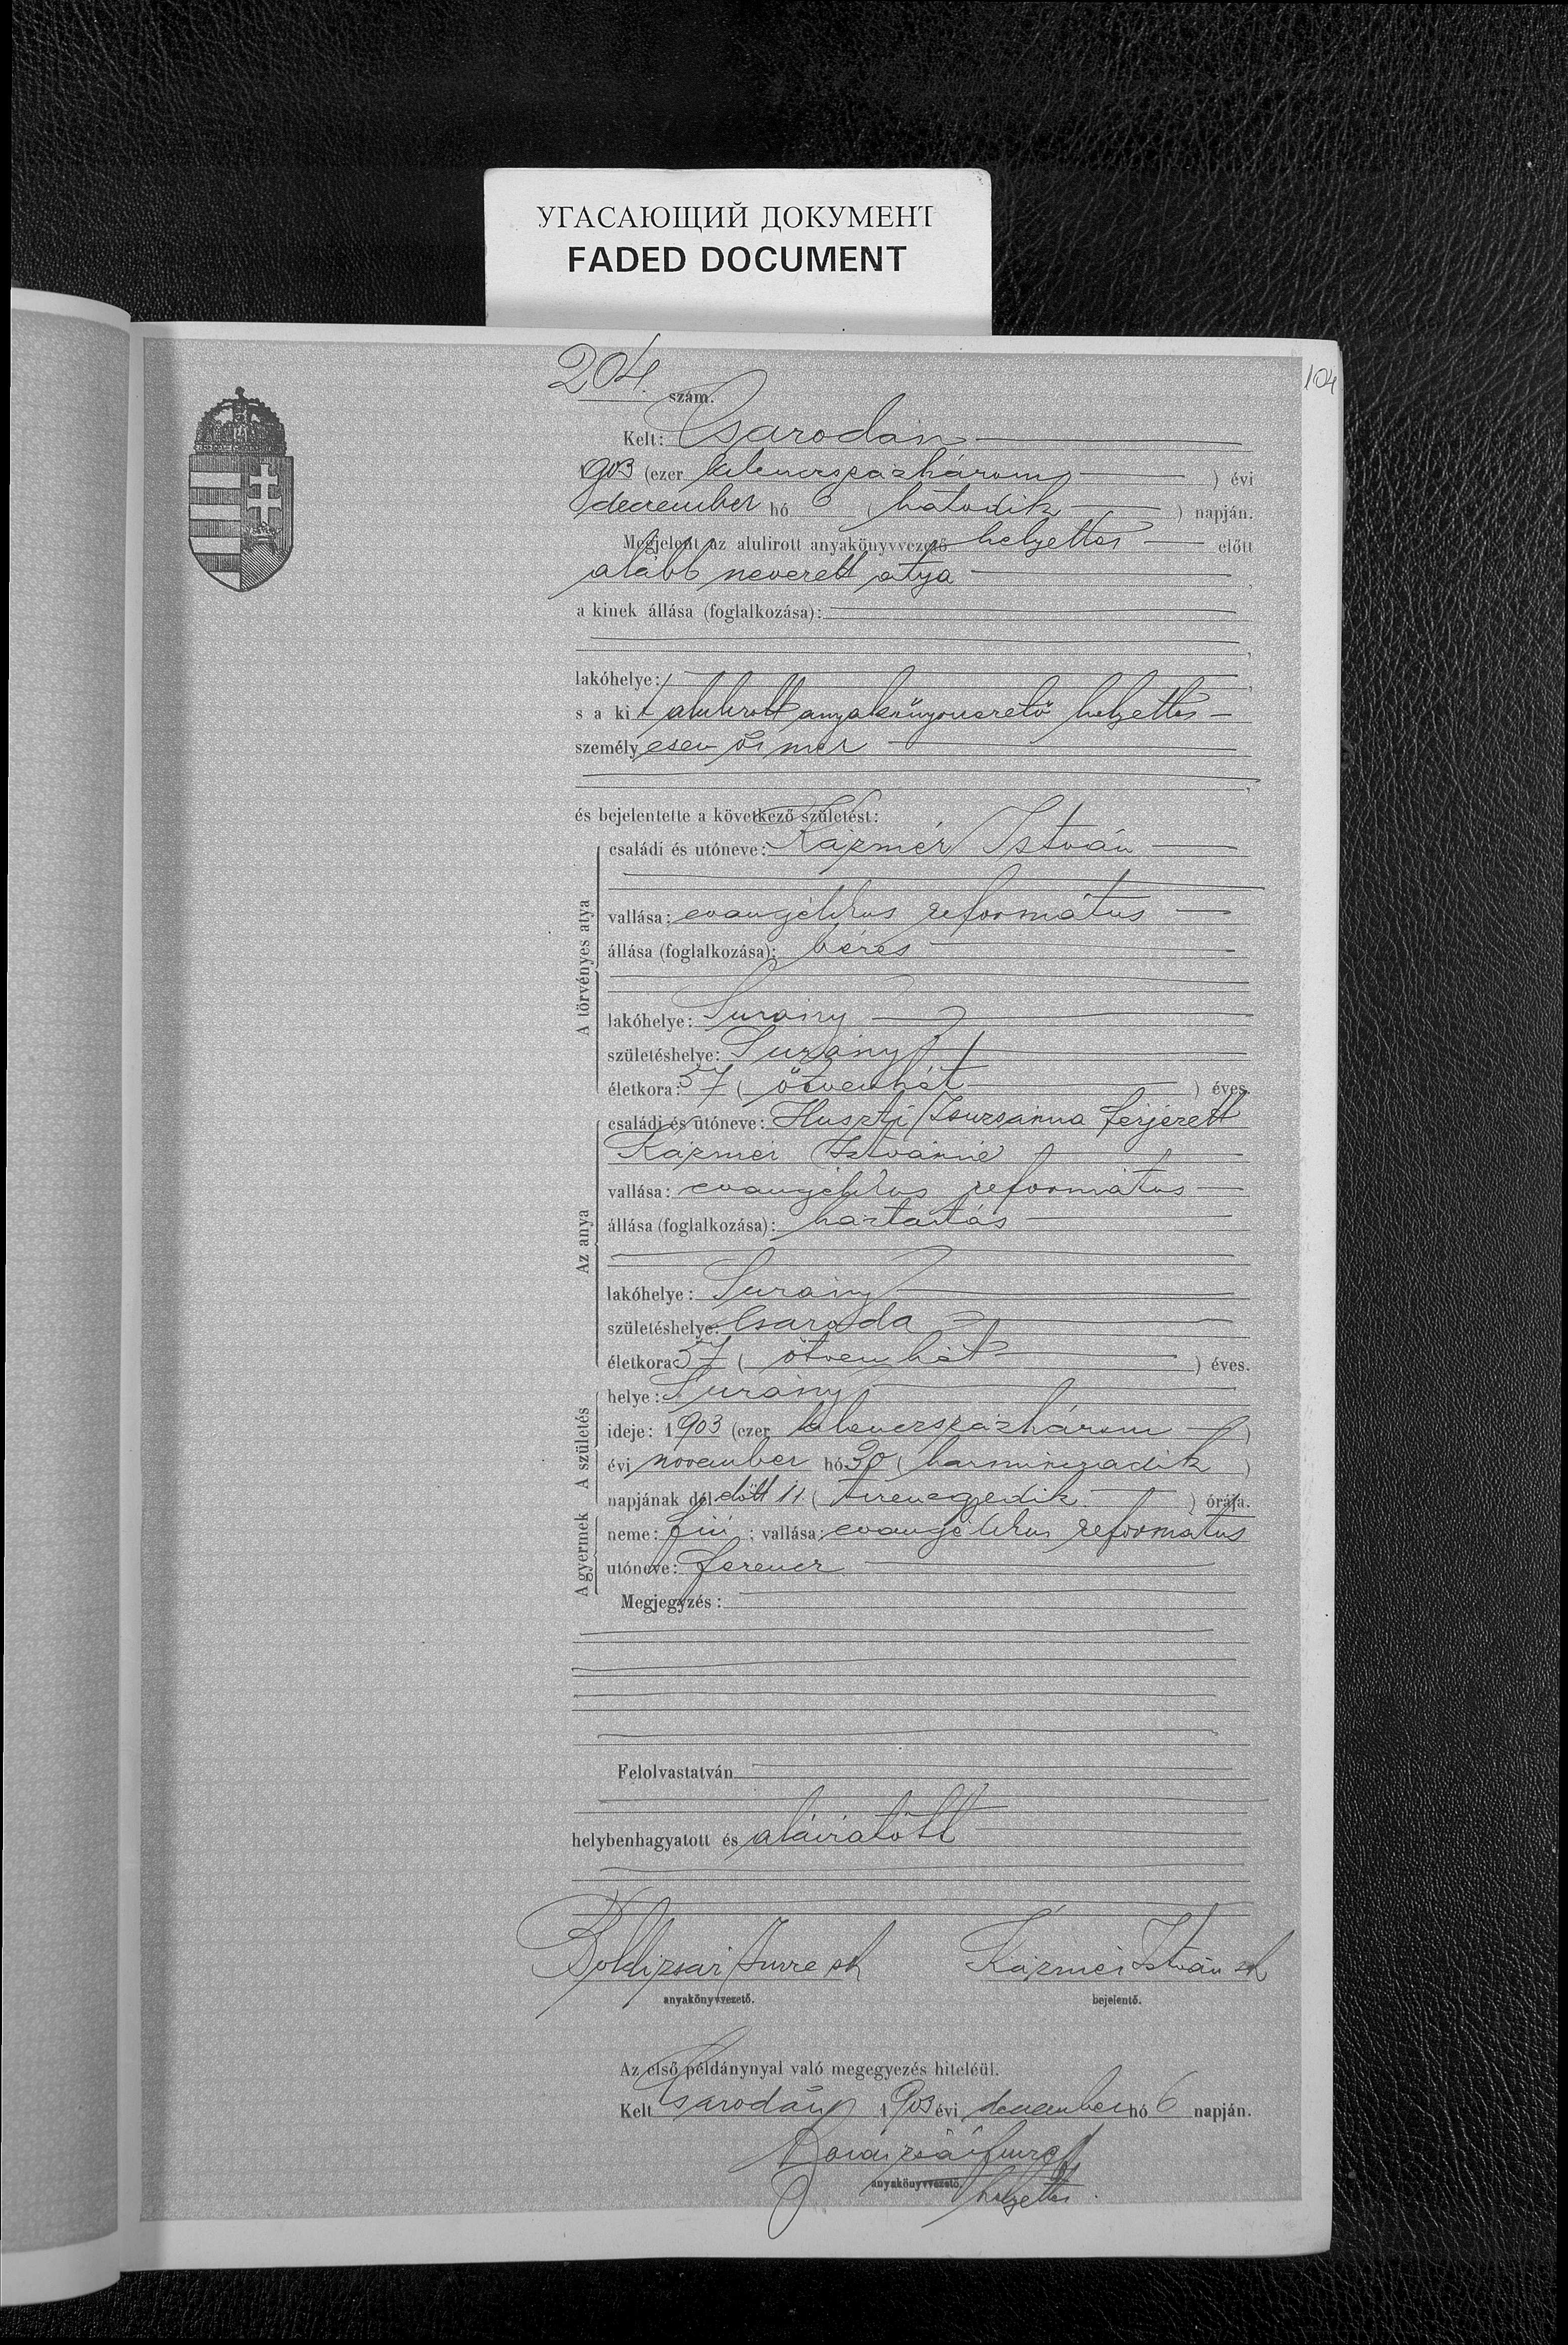 УГАСАЮЩИЙ ДОКУМЕНТ
FADED DOCUMENT
104
204. szám.
Kelt: Csarodán
1903 (ezer kilenczszázhárom) évi
december hó 6 (hatodik) napján.
Megjelent az alulirott anyakönyvvezető helyettes előtt
alább nevezett atya,
a kinek állása (foglalkozása):
lakóhelye:
s a kit alulirott anyakönyvvezető helyettes
személyesen ismer
és bejelentette a következő születést:
A törvényes atya
családi és utóneve: Kázmér István
vallása: evangélikus református
állása (foglalkozása): béres
lakóhelye: Surány
születéshelye: Surány
életkora: 57 (ötvenhét) éves.
Az anya
családi és utóneve: Huszti Zsuzsánna férjezett
Kázmér Istvánné
vallása: evangélikus református
állása (foglalkozása): háztartás
lakóhelye: Surány
születéshelye: Csaroda
életkora 37 (ötvenhét) éves.
A születés
helye: Surány
ideje: 1903 (ezer kilenczszázhárom)
évi november hó 30 (harminczadik)
napjának dél előtt 11 (tizenegyedik) órája.
A gyermek
neme: fiú; vallása: evangélikus református
utóneve: Ferencz
Megjegyzés:
Felolvastatván
helybenhagyatott és aláiratott
Boldizsár Imre sk Kázmér István sk
anyakönyvvezető. bejelentő.
Az első példánynyal való megegyezés hiteléül.
Kelt Csarodán 1903 évi december hó 6 napján.
Boldizsár Imre
anyakönyvvezető.
helyettes.